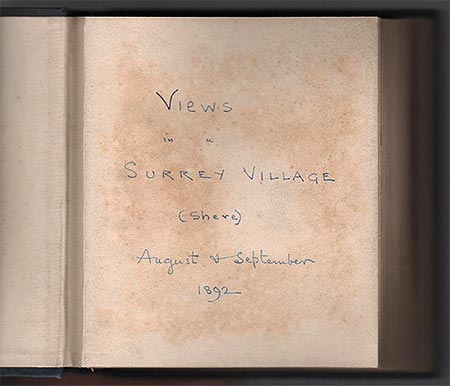 Views
in a
SURREY VILLAGE
(Shere)
August & September
1892